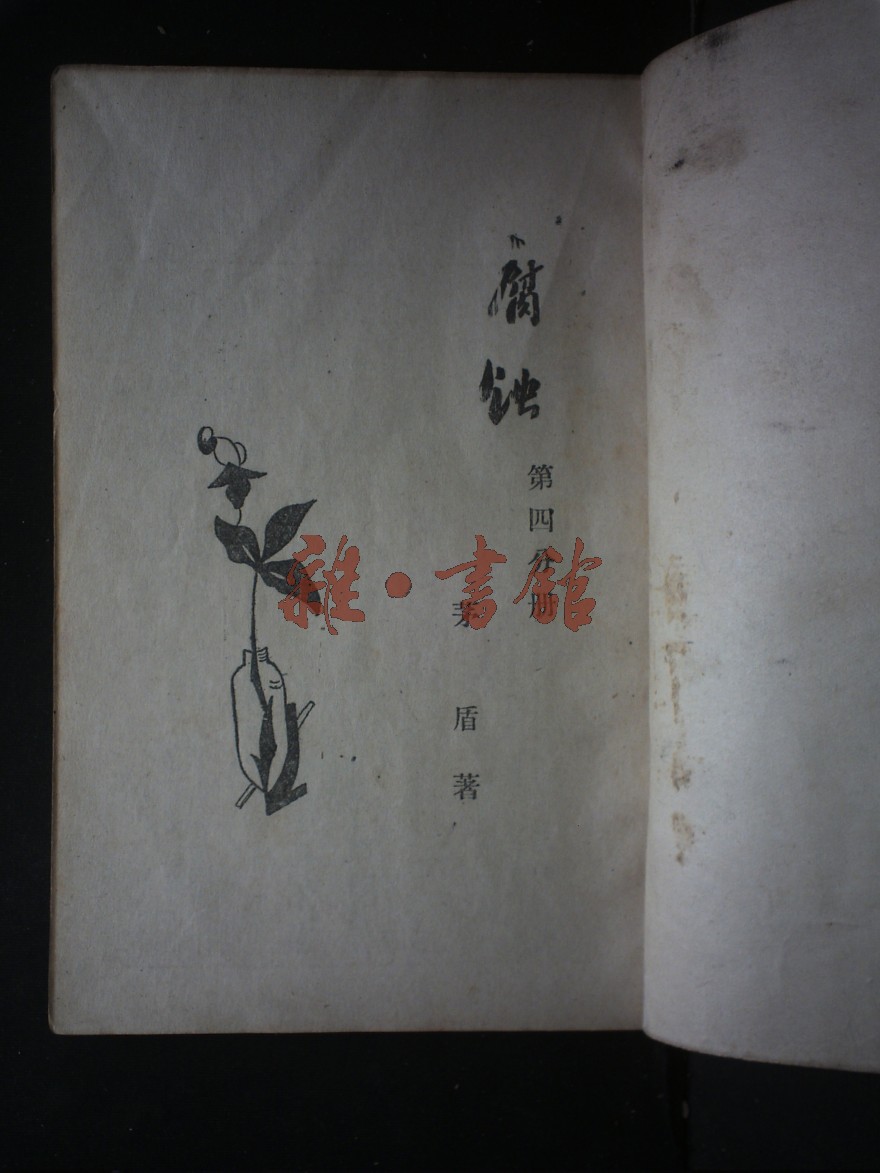 腐蝕
第四分册
茅盾著
雜·書館